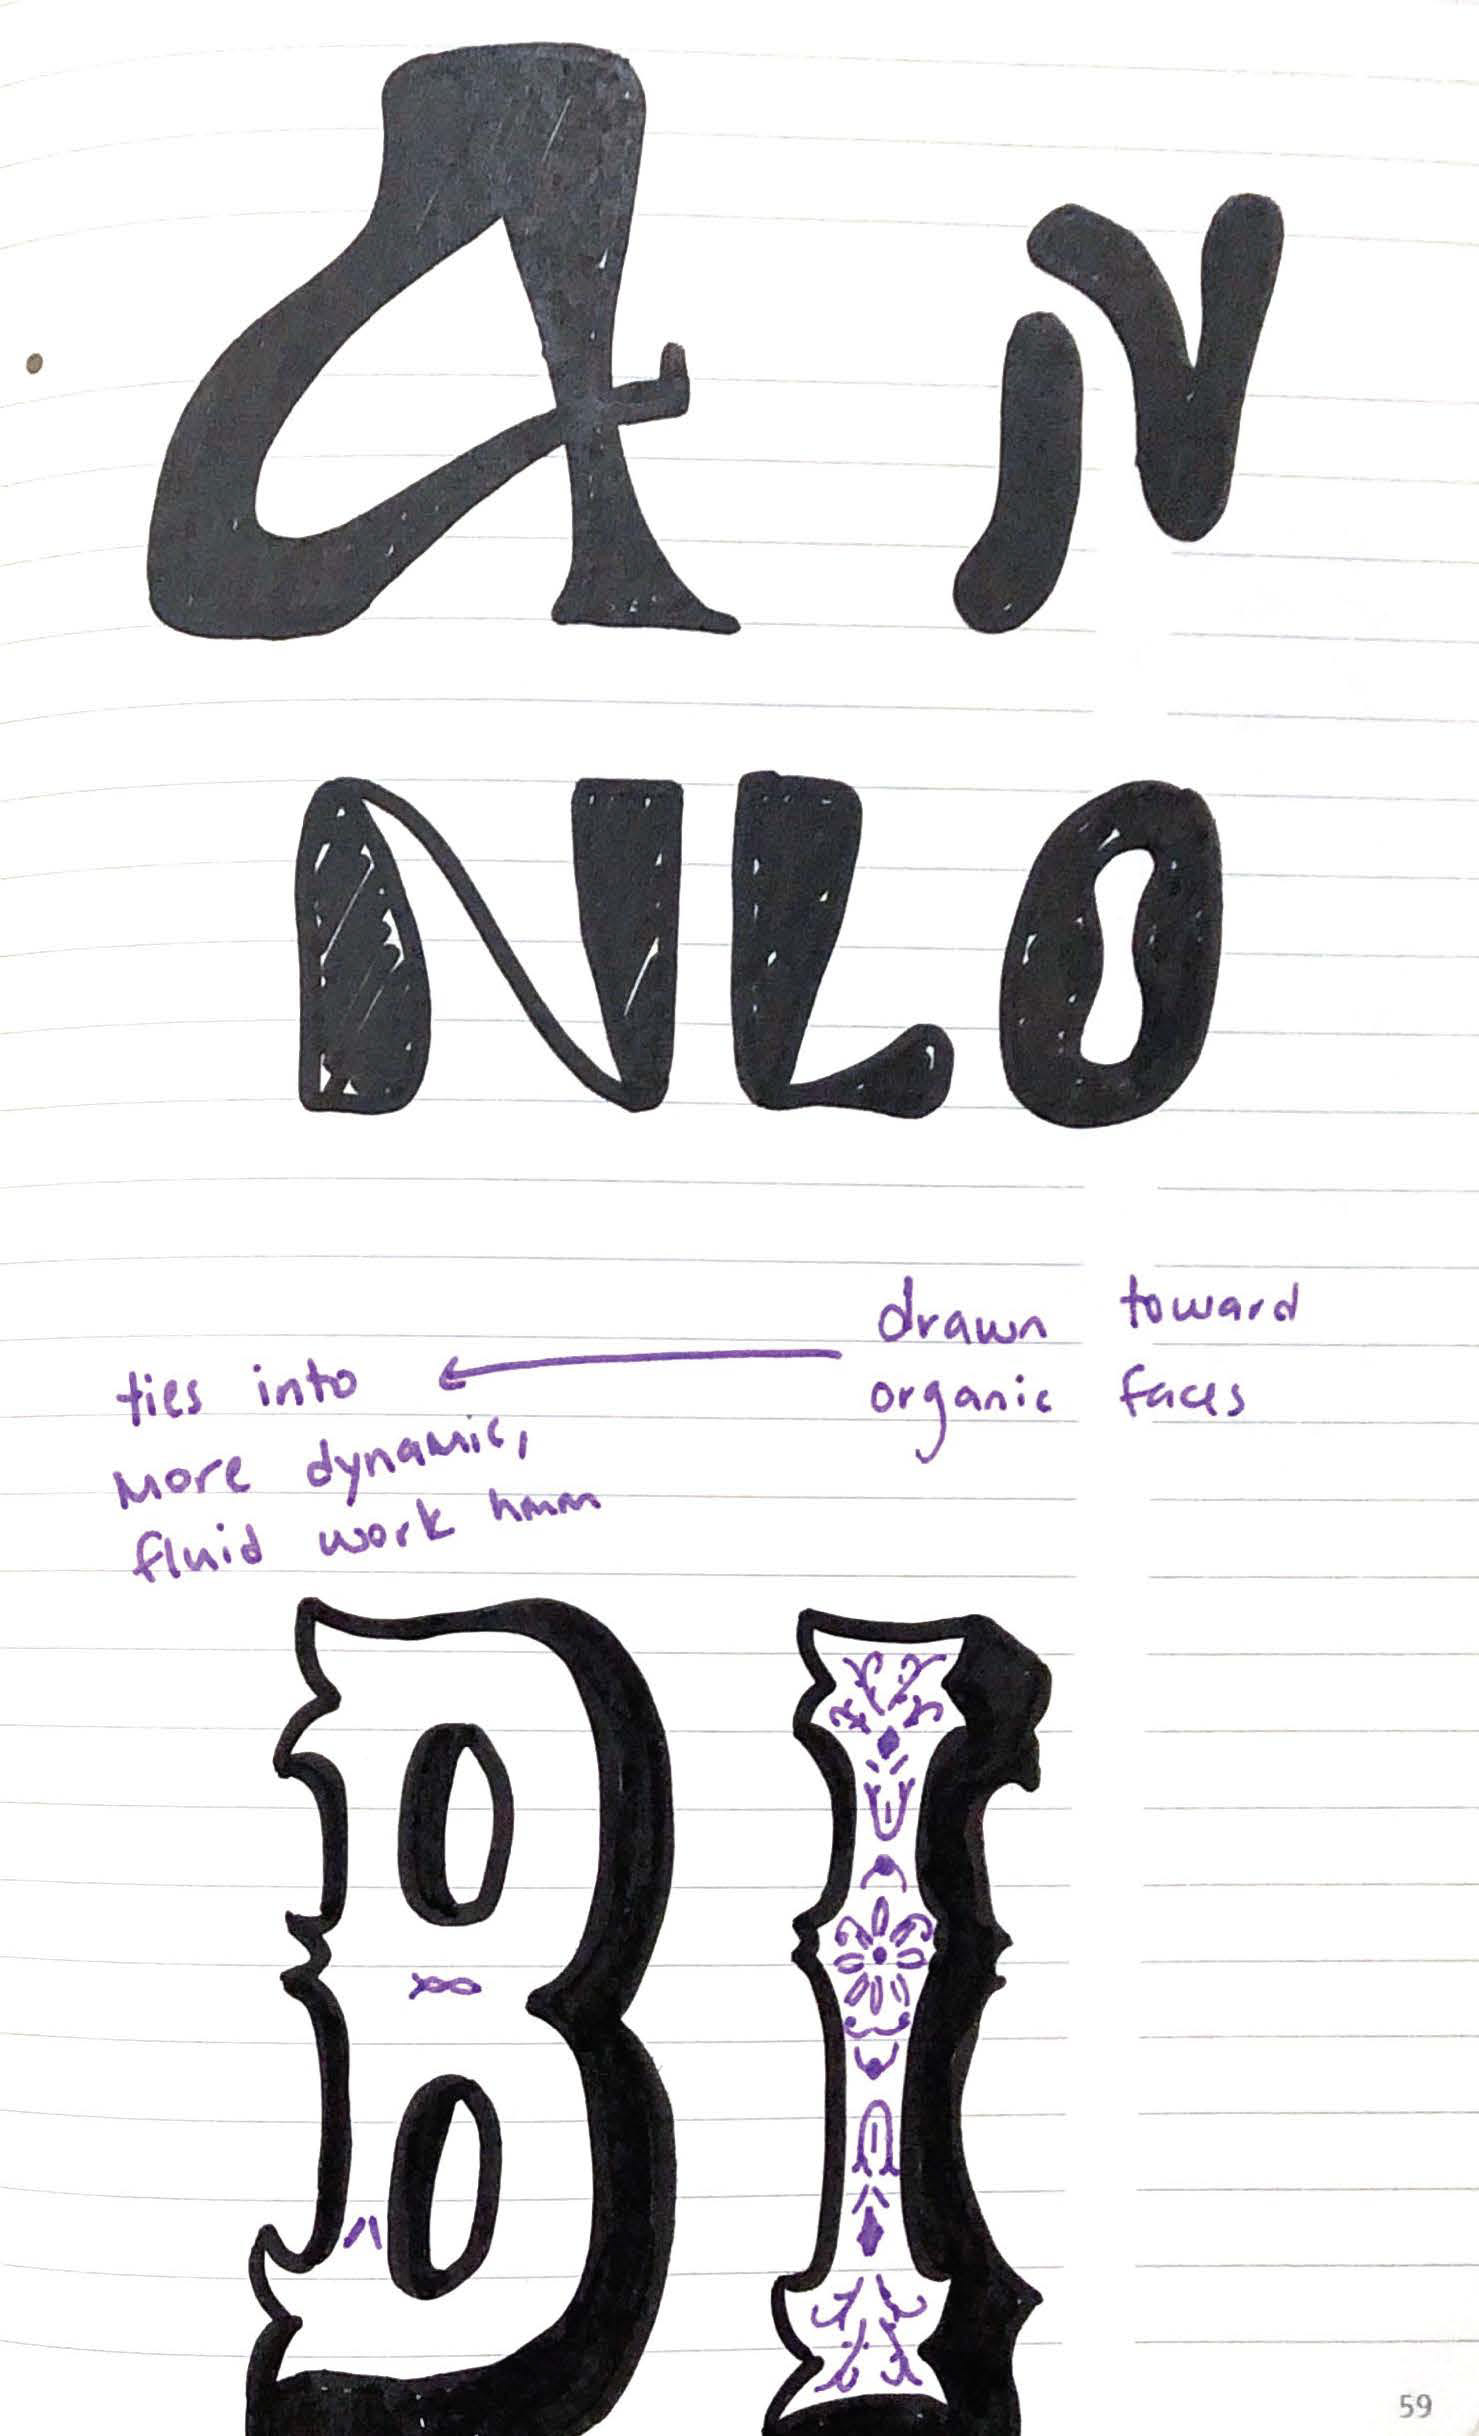 A N
N L O
drawn toward
organic faces
ties into
more dynamic,
fluid work hmm
B I
59